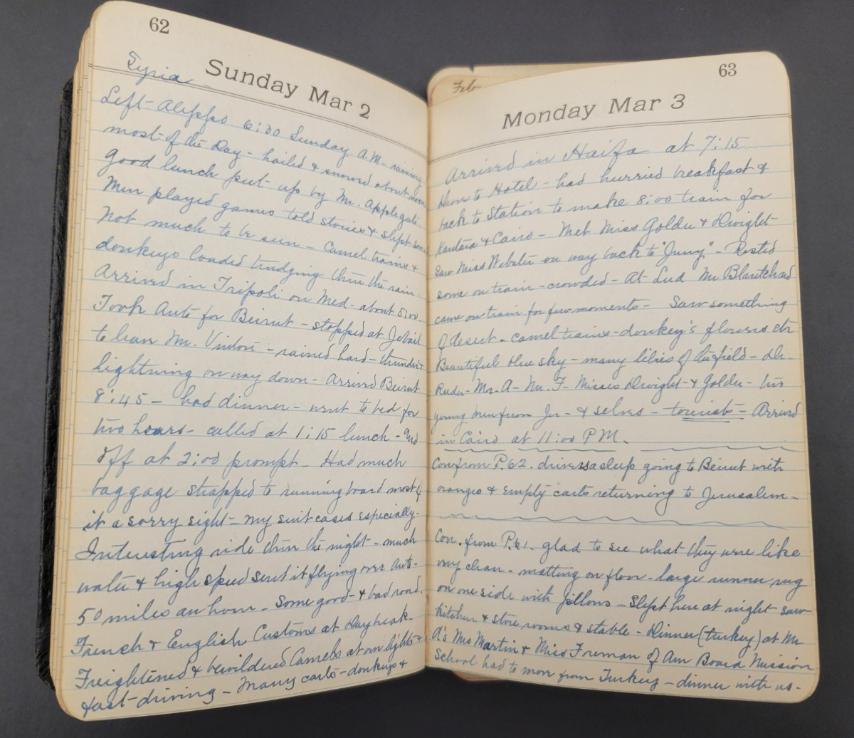 62
Syria
Sunday Mar 2
Left Aleppo 6:30 Sunday A.M. raining
most of the Day - hailed & snowed about
Good lunch put up by Mr. Applegate
Men played games told stories & slept
Not much to be seen - Camel trains &
donkeys loaded trudging thru the rain
Arrived in Tripoli on Med. about 5:00
Took Auto for Beirut - stopped at Jebail
to leave Mr. - rained hard - thunder
lightning on way down - arrived Beirut
8:45 - had dinner - went to bed for
two hours - called at 1:15 lunch - and
off at 2:00 prompt - Had much
baggage strapped to running board most of
it a sorry sight - my suit cases especially -
Interesting ride thru the night - much
water & high speed sent it flying over auto -
50 miles an hour - Some good & bad road.
French & English Customs at Daybreak.
Freightened & bewildered Camels at our lights &
fast driving - Many carts - donkeys &
63
Feb
Monday Mar 3
Arrived in Haifa at 7:15
then to Hotel - had hurried breakfast &
back to Station to make 8:00 train for
Kantara & Cairo - Met Miss Golder & Dwight
Saw Miss Webster on way back to "Juny." - Rested
some on train - crowded - At Lud Mr
came on train for few moments - Saw something
of desert - camel trains - donkey's flowers etc
Beautiful blue sky - many lilies of the field - Dr.
- Mr. A - Mr. F. Misses Dwight & Golder - two
young men from Jr. & selves - tourists - Arrived
in Cairo at 11:00 P.M.
Con from P. 62. drivers asleep going to Beirut with
oranges & empty carts returning to Jerusalem -
Con. from P. 61. glad to see what they were like
very clean - matting on floor - large runner rug
on one side with pillows - Slept here at night saw
kitchen & store rooms & stable - Dinner (turkey) at Mr
A's Mrs Martin & Miss Foreman of Am Board Mission
School had to move from Turkey - dinner with us -